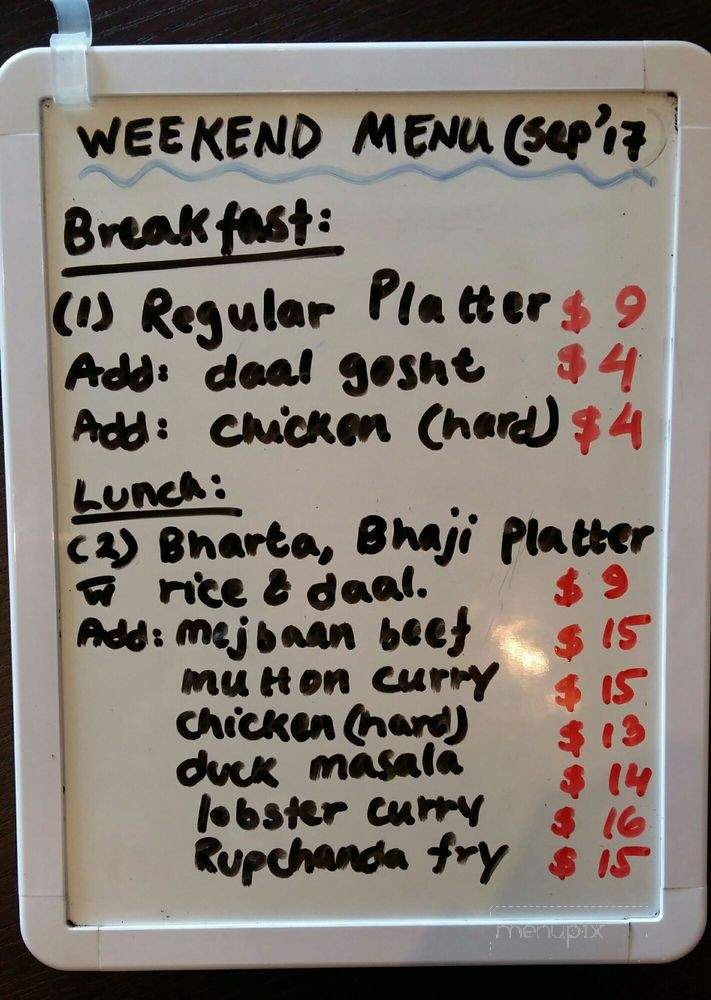 WEEKEND MENU (Sep'17
Breakfast:
(1) Regular Platter $ 9
Add: daal gosht $ 4
Add: chicken (hard) $4
Lunch:
(2) Bharta, Bhaji platter
w rice & daal. $ 9
Add: mejbaan beef $ 15
mutton curry $ 15
chicken (hard) $ 13
duck masala $ 14
lobster curry $ 16
Rupchanda fry $ 15
menupix